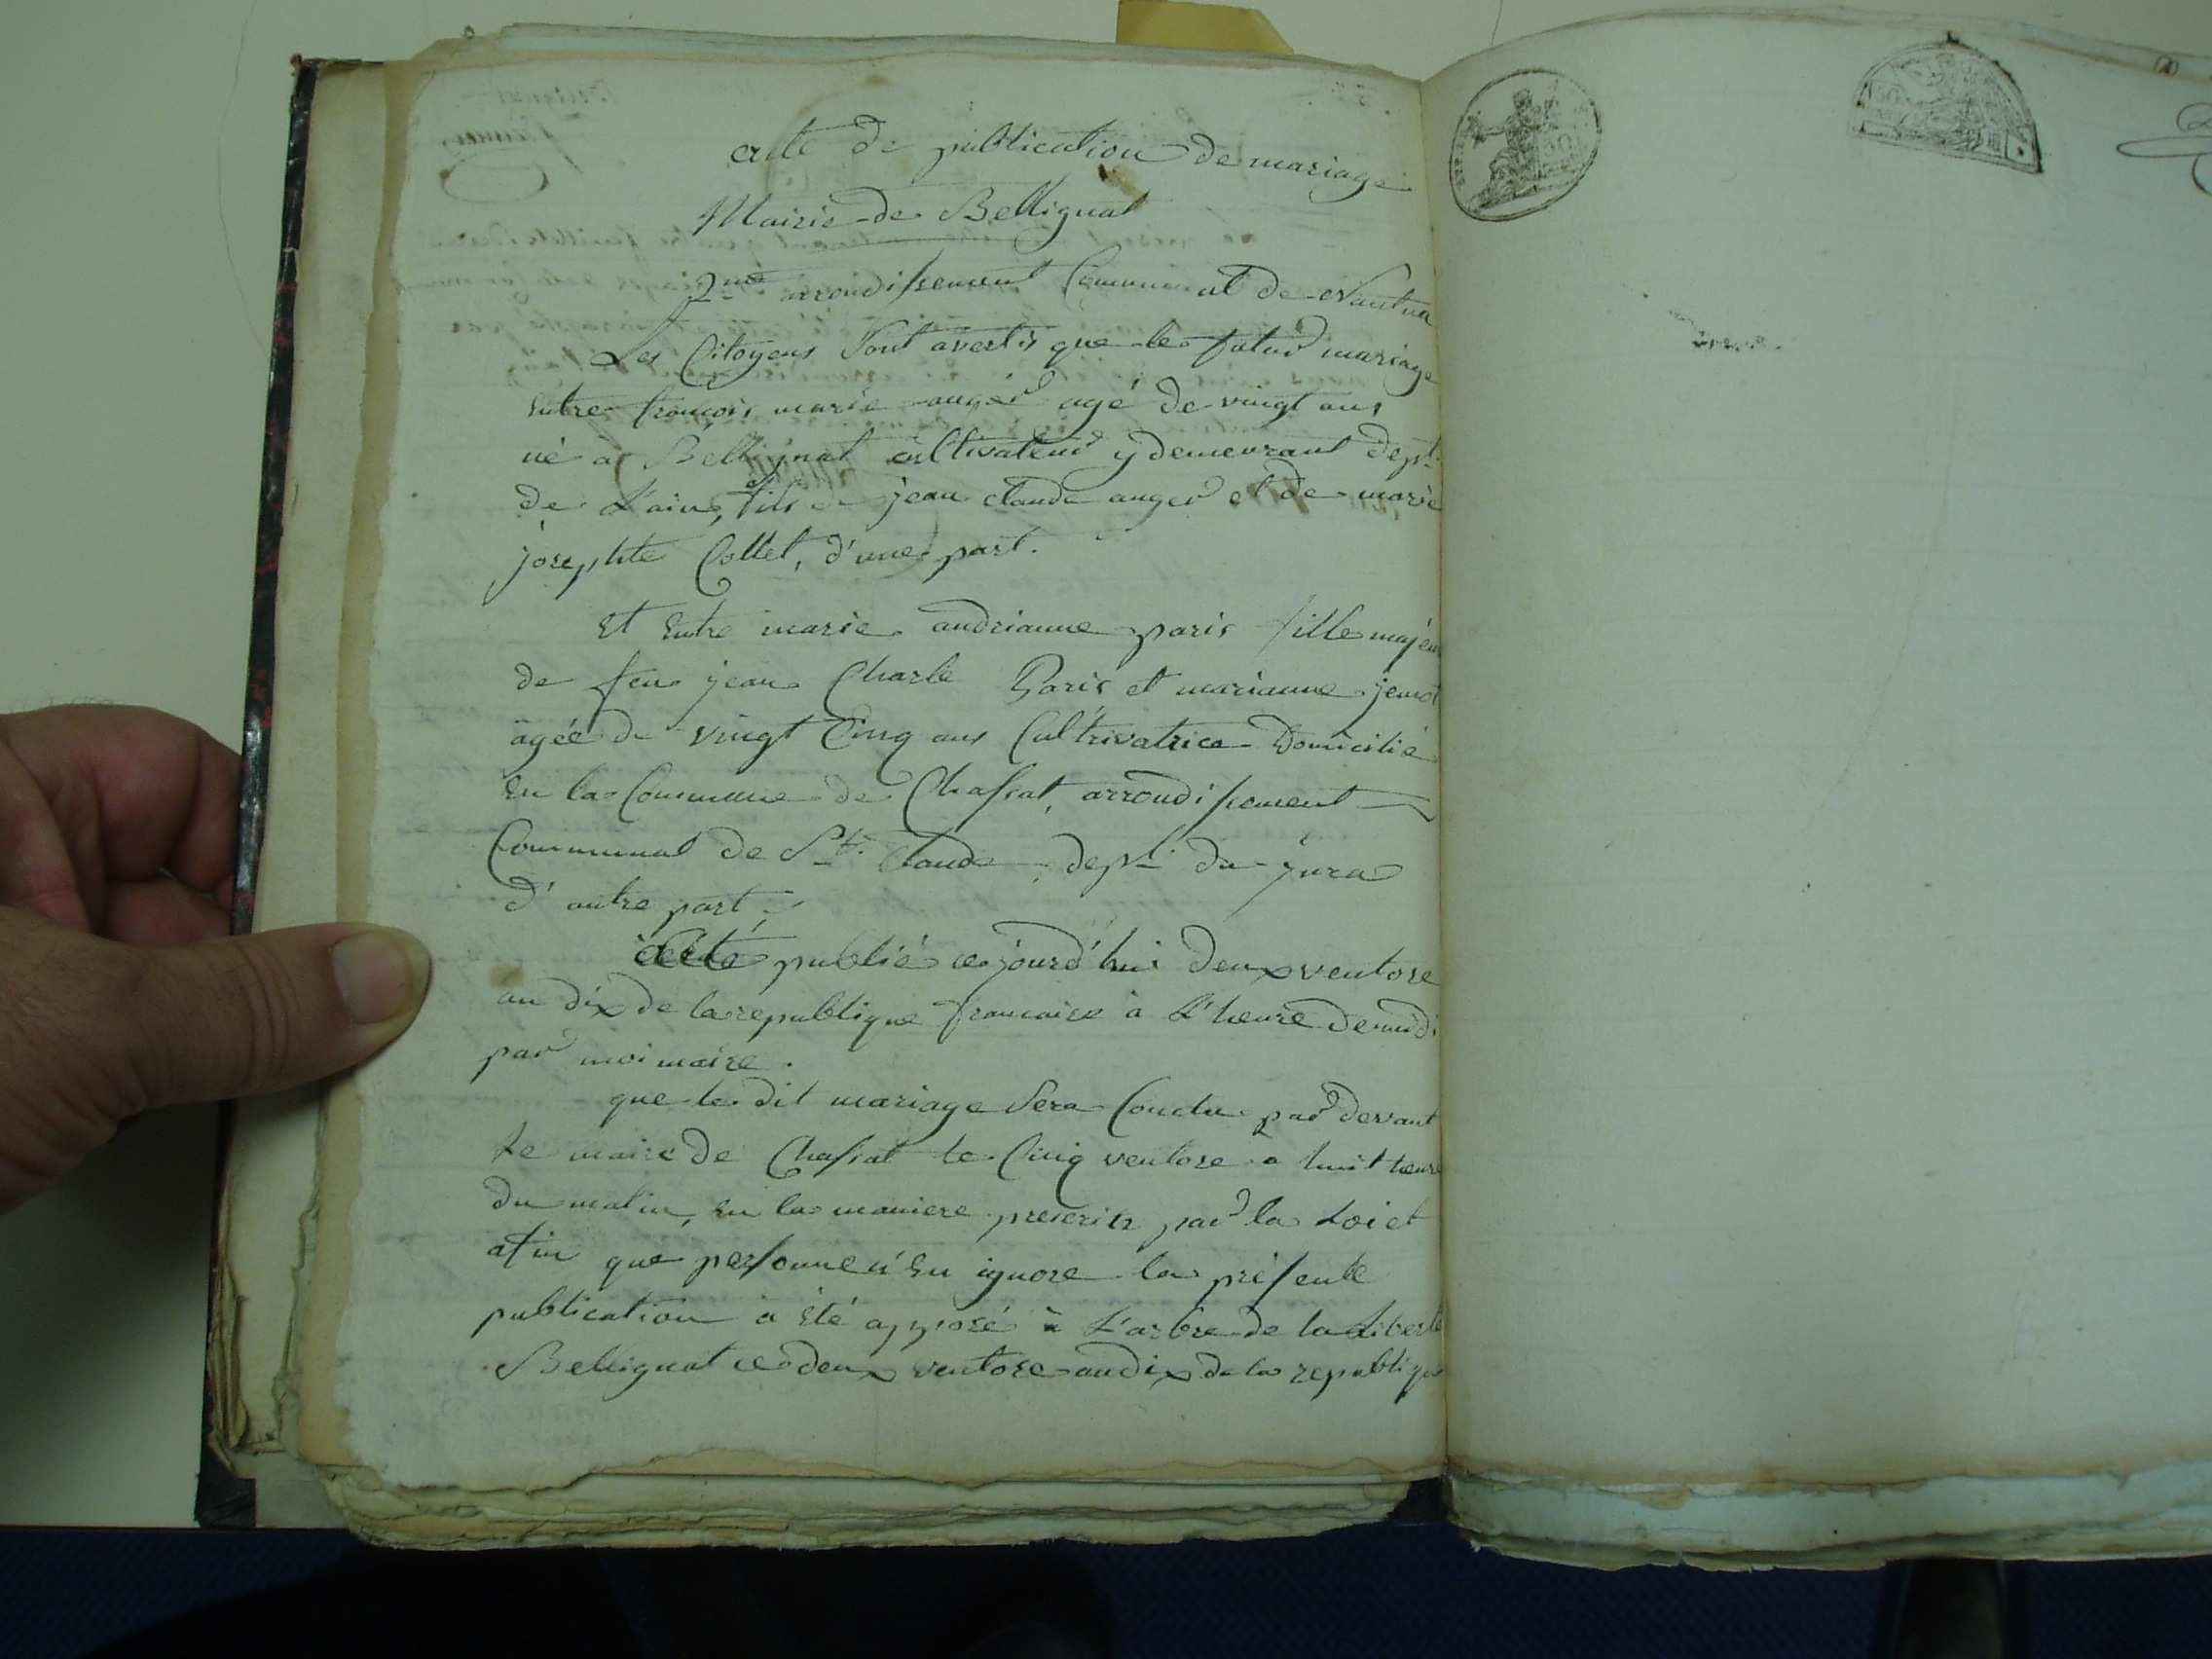 acte de publication de mariage
Mairie de Bellignat
2me arrondissement Communal de Nantua
Les Citoyens sont avertis que le futur mariage
Entre françois marie auger agé de vingt ans
né a Bellignat cultivateur y demeurant dept.
de L'ain, fils de jean claude auger et de marie
josephte Collet, d'une part.
Et Entre marie andrianne paris fille majeur
de feu jean Charle Paris et marianne
agée de vingt Cinq ans Cultrivatrice Domicilié
En la Commune de Chassat, arrondissement
Communal de St. Claude, dept. du jura
d'autre part.
été publié cejourd'hui deux ventose
an dix de la republique francaise à L'heure de midi
par moi maire.
que le dit mariage sera Conclu par devant
Le maire de Chassat le Cinq ventose a huit heure
du matin, En la maniere prescrite par la Loi et
afin que personne n'En ignore la présente
publication a Eté apposé à L'arbre de la Liberté
Bellignat ce deux ventose an dix de la republique